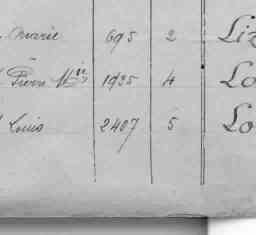 Marie 695 2 Liz
Pierre Mie 1935 4 Lo
Louis 2407 5 Lo